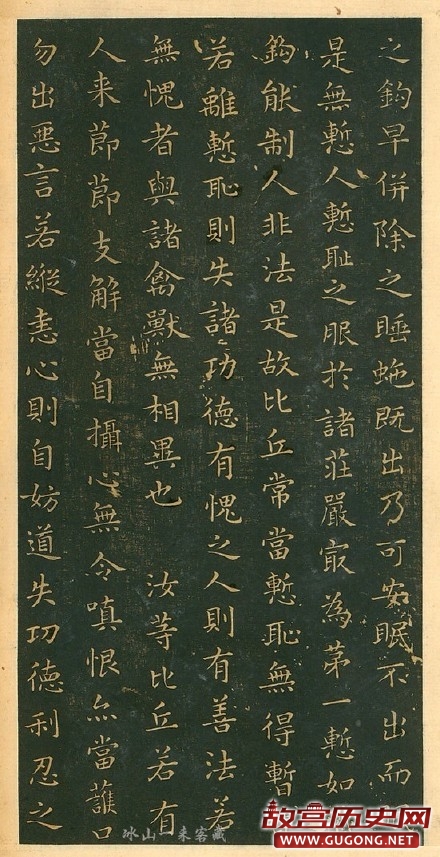 之鈎早併除之睡虵既出乃可安眠不出而
是無慙人慙耻之服於諸莊嚴㝡為苐一慙如
鈎能制人非法是故比丘常當慙恥無得暫
若離慙恥則失諸功德有愧之人則有善法若
無愧者與諸禽獸無相異也 汝等比丘若有
人来莭莭支解當自攝心無令嗔恨亦當護口
勿出惡言若縱恚心則自妨道失功德利忍之
冰山一来客藏
故宫历史网
WWW.GUGONG.NET